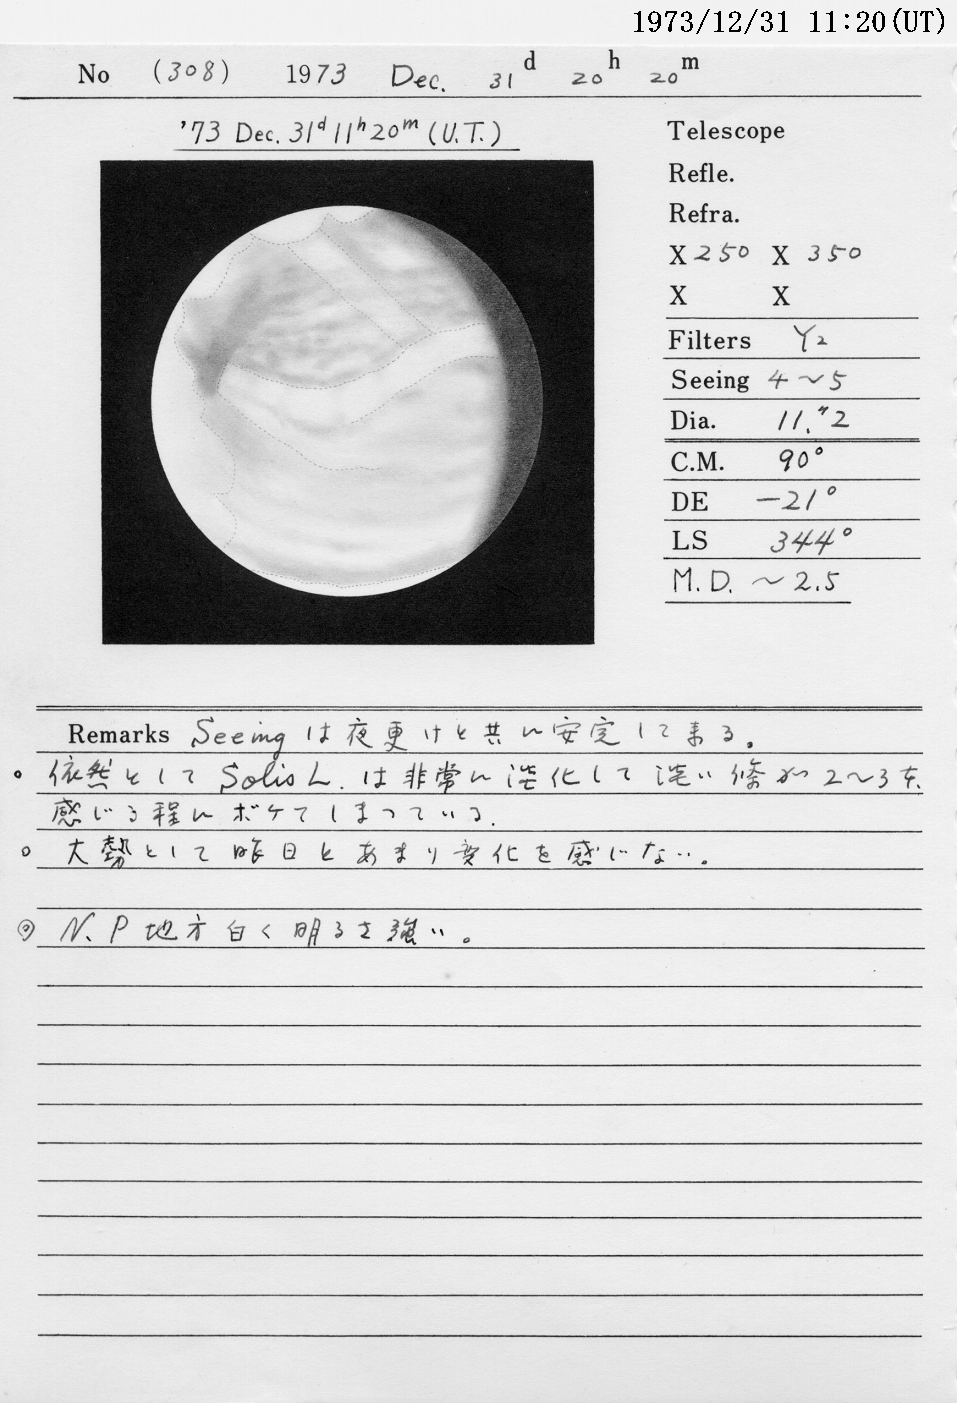 1973/12/31 11:20(UT)
No (308) 1973 Dec. 31d 20h 20m
'73 Dec. 31d 11h 20m (U.T.)
Telescope
Refle.
Refra.
X 250 X 350
X X
Filters Y2
Seeing 4～5
Dia. 11."2
C.M. 90°
DE －21°
LS 344°
M.D. ～2.5
Remarks Seeingは夜更けと共に安定して来る。
• 依然としてSolis L.は非常に淡化して淡い條が2～3本、
感じる程にボケてしまっている.
○ 大勢として昨日とあまり変化を感じない。
◎ N.P地方白く明るさ強い。